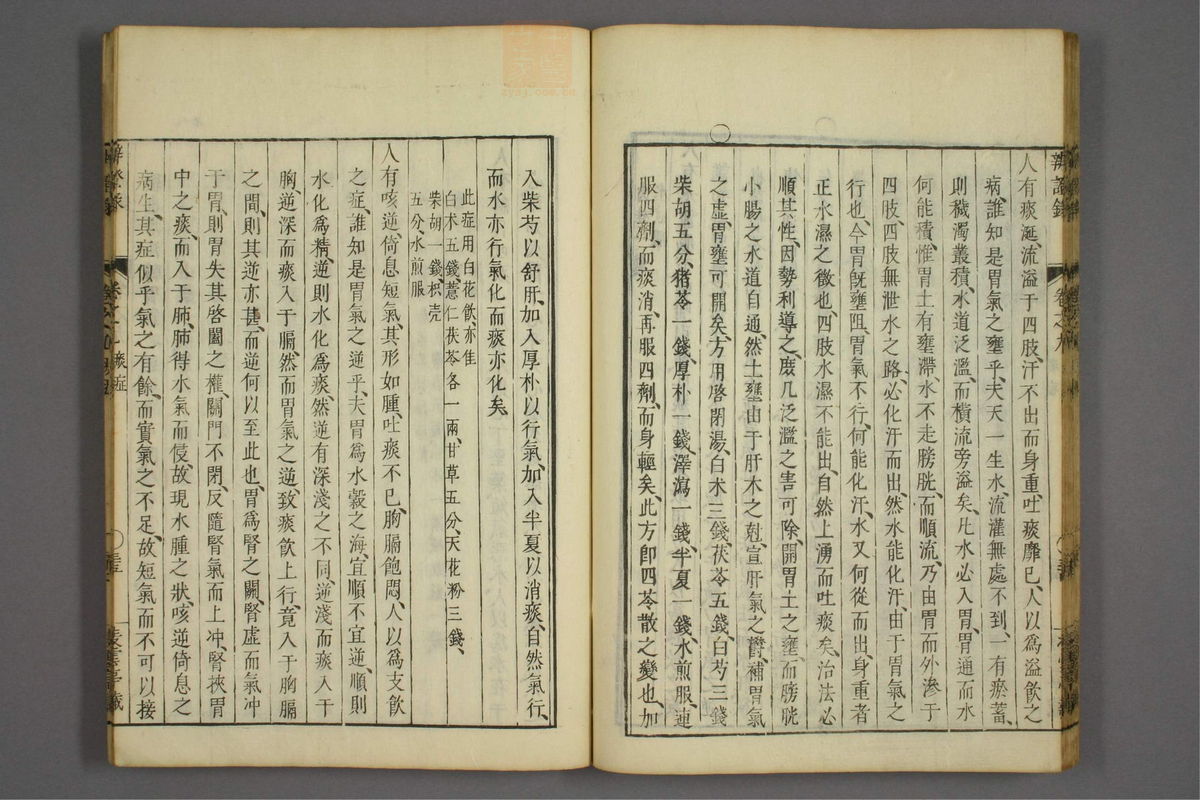 辨證錄
卷之九
人有痰涎流溢于四肢、汗不出而身重、吐痰靡已、人以爲溢飲之
病、誰知是胃氣之壅乎、夫天一生水、流灌無處不到、一有瘀蓄、
則穢濁叢積、水道泛濫、而橫流旁溢矣、凡水必入胃、胃通而水
何能積、惟胃土有壅滯、水不走膀胱、而順流、乃由胃而外滲于
四肢、四肢無泄水之路、必化汗而出、然水能化汗、由于胃氣之
行也、今胃旣壅阻、胃氣不行、何能化汗、水又何從而出、身重者
正水濕之徵也、四肢水濕不能出、自然上湧而吐痰矣、治法必
順其性、因勢利導之、庶几泛濫之害可除、開胃土之壅、而膀胱
小腸之水道自通、然土壅由于肝木之尅、宣肝氣之鬱、補胃氣
之虛、胃壅可開矣、方用啓閉湯、白术三錢、茯苓五錢、白芍三錢
柴胡五分、猪苓一錢、厚朴一錢、澤瀉一錢、半夏一錢、水煎服、連
服四劑、而痰消、再服四劑、而身輕矣、此方卽四苓散之變也、加
入柴芍以舒肝、加入厚朴以行氣、加入半夏以消痰、自然氣行、
而水亦行、氣化而痰亦化矣、
此症用白花飲亦佳
白术五錢、薏仁、茯苓各一兩、甘草五分、天花粉三錢、
柴胡一錢、枳壳
五分、水煎服
人有咳逆倚息短氣、其形如腫、吐痰不已、胸膈飽悶、人以爲支飲
之症、誰知是胃氣之逆乎、夫胃爲水穀之海、宜順不宜逆、順則
水化爲精、逆則水化爲痰、然逆有深淺之不同、逆淺而痰入于
胸、逆深而痰入于膈、然而胃氣之逆、致痰飲上行、竟入于胸膈
之間、則其逆亦甚、而逆何以至此也、胃爲腎之關、腎虛而氣冲
于胃、則胃失其啓闔之權、關門不閉、反隨腎氣而上冲、腎挾胃
中之痰、而入于肺、肺得水氣而侵、故現水腫之狀、咳逆倚息之
病生、其症似乎氣之有餘、而實氣之不足、故短氣而不可以接
痰症